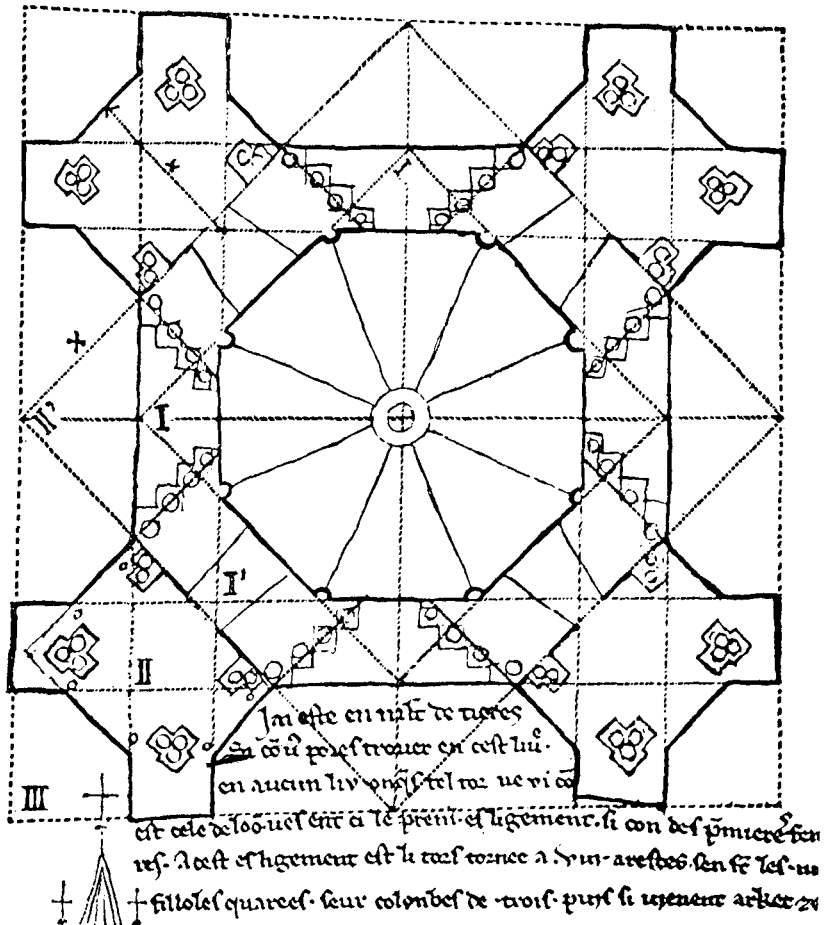 I
II'
I'
II
Jai este en mlt de tieres
si cō uͦ pores trouer en cest liuͦ·
en aucun liu onq̄s tel tor ne vi cō
III
est cele de loō· ves ent ci le premi· esligement· si con des p̄mieres fen
res· A cest esligement est li tors tornee a ·viii· arestes· sen st̄ les·iiii
filloles quarees· seur colonbes de ·trois· puis si vienent arket ze